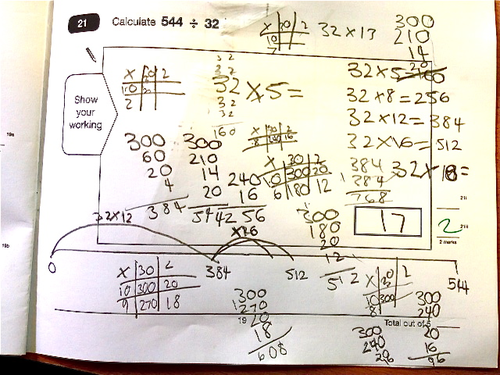 21 Calculate 544 ÷ 32
32 x 13
300
210
14
20
Show
your
working
x 30 2
10
2
32
32
32 x 5 =
32
32
160
32 x 5 160
32 x 8 = 256
32 x 12 = 384
32 x 16 = 512
32 x 18 =
384
384
768
300
60
20
4
384
300
210
14
20
544
240
16
256
x 30 2
10 300 20
6 180 12
300
180
20
12
512
17
2
2 marks
32 x 12
x16
0
384
512
544
x 30 2
10 300 20
9 270 18
300
270
20
18
608
19
x 30 2
10 300
8
300
240
20
300
240
20
16
Total out of